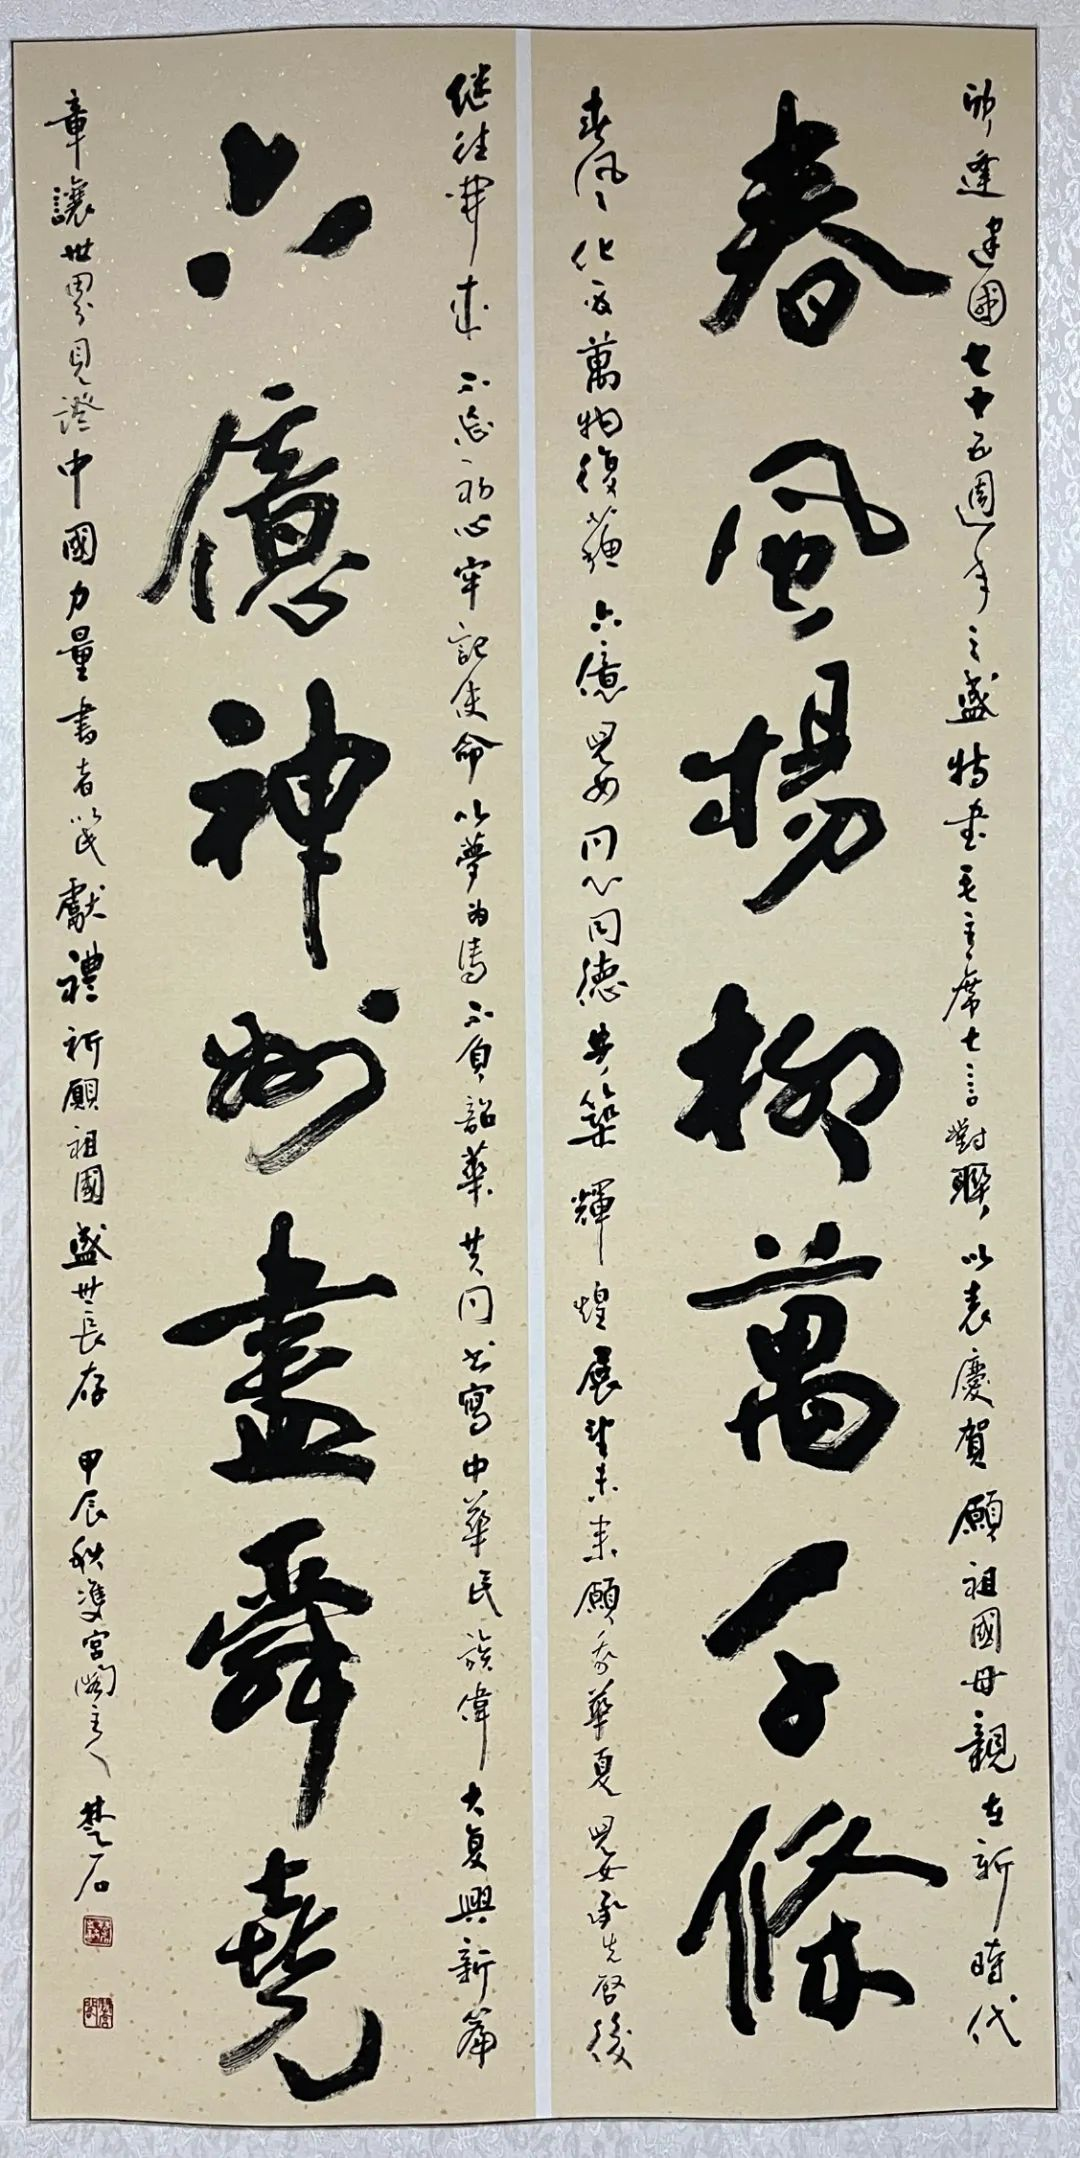 欣逢建國七十五週年之盛特書毛主席七言對聯以表慶賀願祖國母親在新時代
春風楊柳萬千條
春風化雨萬物復蘇六億兒女同心同德共築輝煌展望未来願我華夏兒女承先啓後
继往開来不忘初心牢記使命以夢为馬不負韶華共同书寫中華民族偉大复興新篇
六億神州盡舜堯
章讓世界見證中國力量書者以此獻禮祈願祖國盛世長存甲辰秋雙宮閣主人楚石